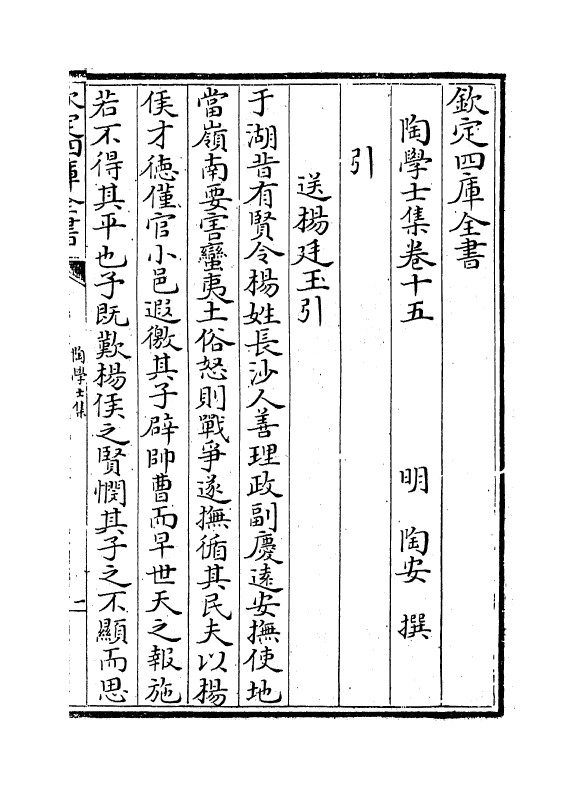 欽定四庫全書
陶學士集卷十五
明 陶安 撰
引
送楊廷玉引
于湖昔有賢令楊姓長沙人善理政副慶逺安撫使地
當嶺南要害蠻夷土俗怒則戰爭遂撫循其民夫以楊
侯才德僅官小邑遐徼其子辟帥曹而早世天之報施
若不得其平也予既歎楊侯之賢憫其子之不顯而思
欽定四庫全書
陶學士集
一